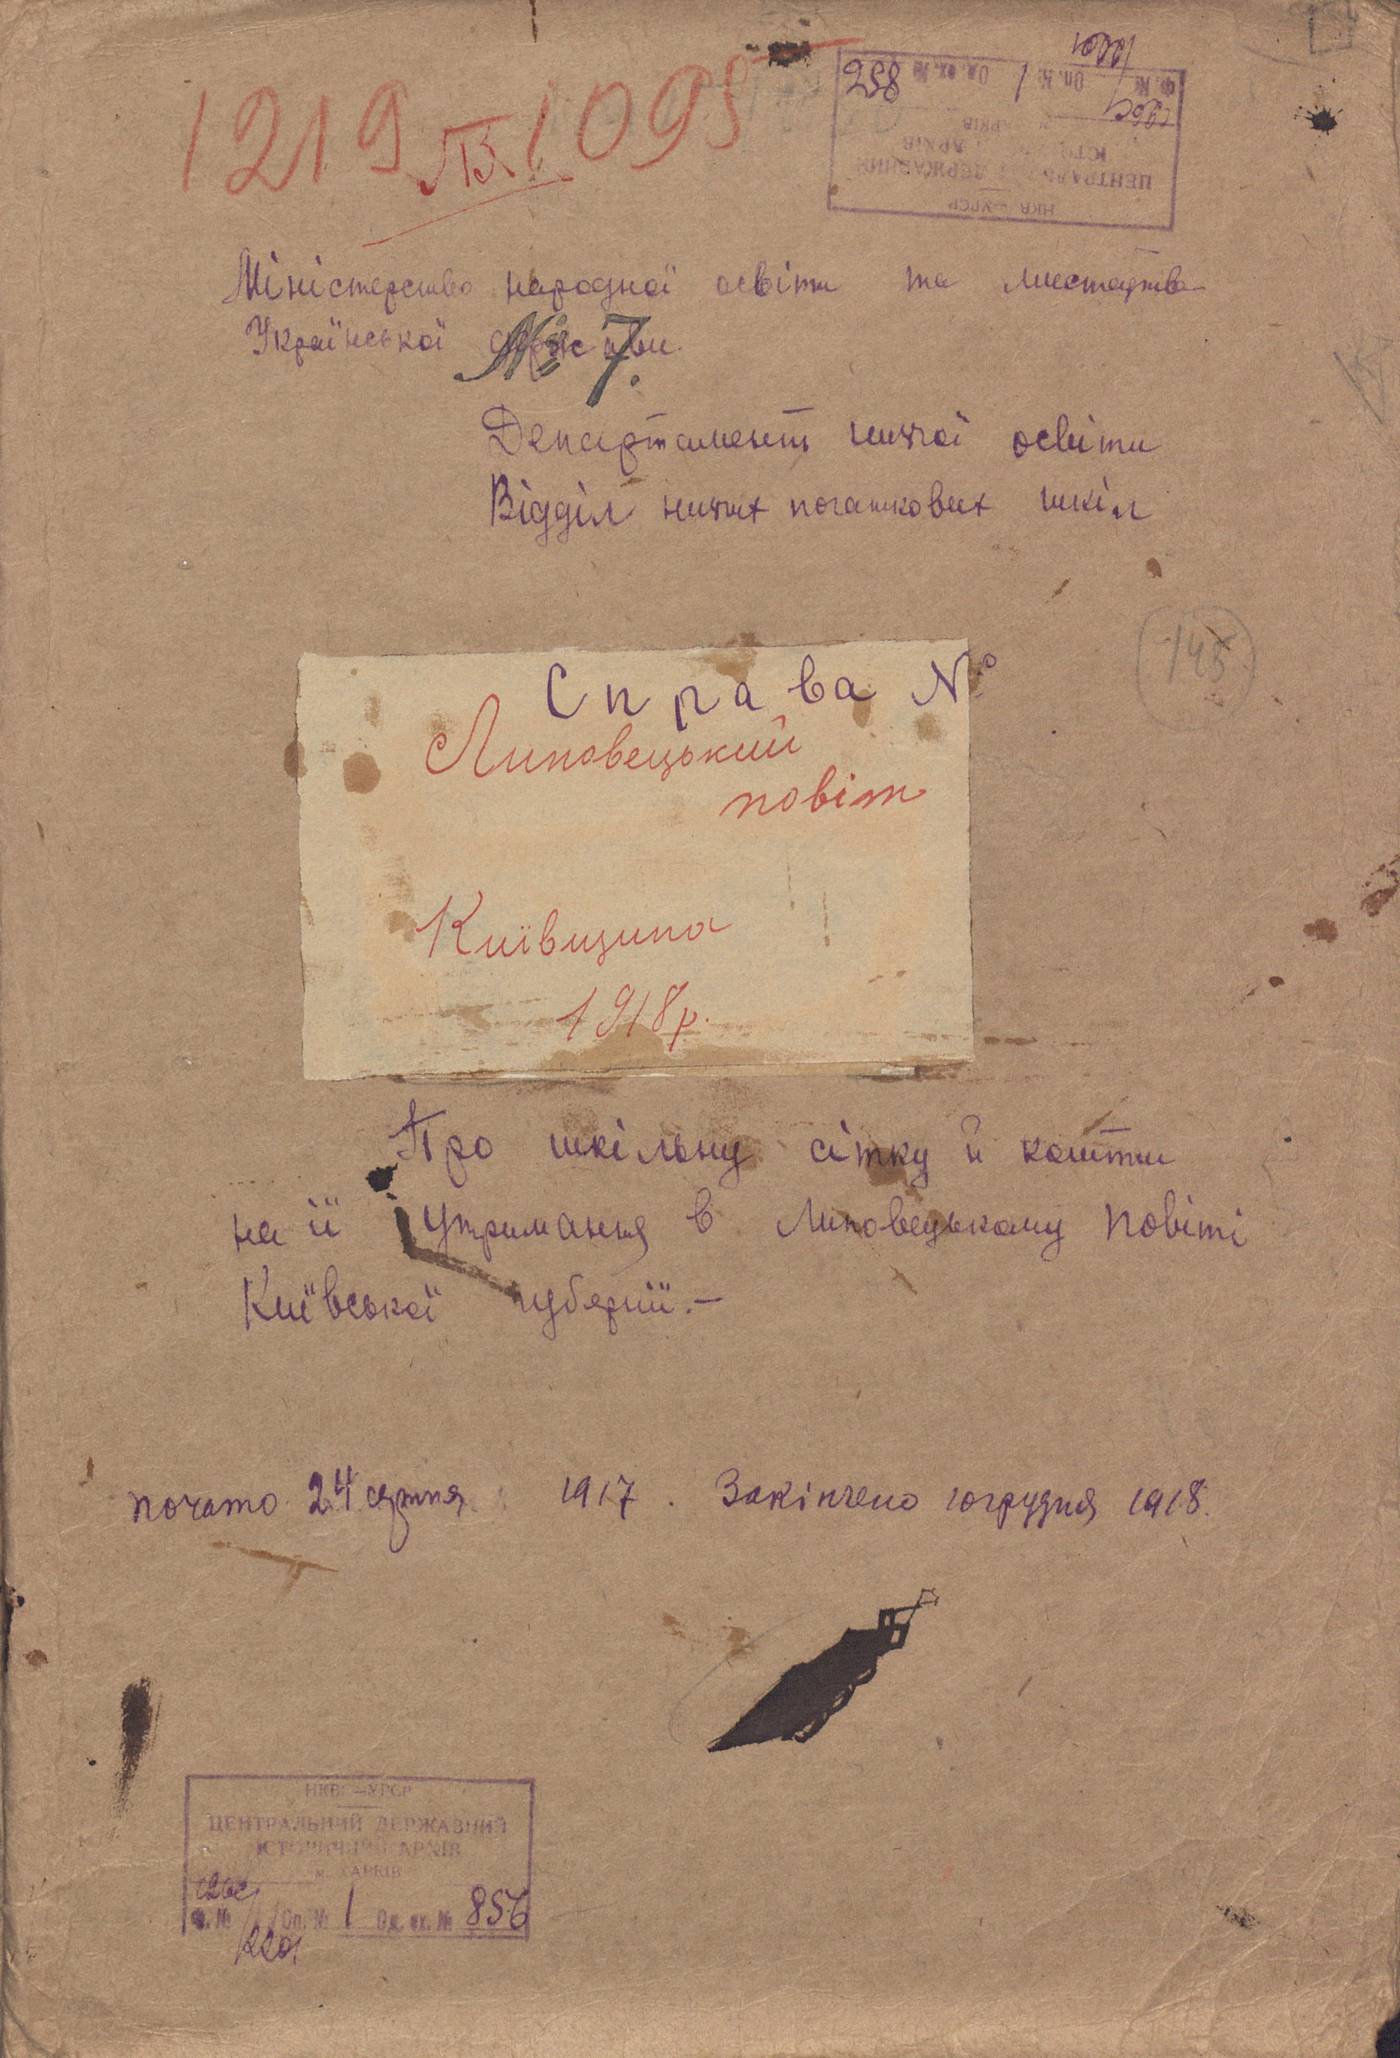 1219 1095
Міністерство народної освіти та мистецтва
Української держави.
№ 7.
Департамент нижчої освіти
Відділ нижчих початкових шкіл
145
Справа №
Липовецький
повіт
Київщина
1918 р.
Про шкільну сітку й кошти
на її утримання в Липовецькому повіті
Київської губернії.–
почато 24 серпня 1917. Закінчено 10 грудня 1918.
НКВС–УРСР
ЦЕНТРАЛЬНИЙ ДЕРЖАВНИЙ
ІСТОРИЧНИЙ АРХІВ
м. ХАРКІВ
Ф. № Оп. № 1 Од. зх. № 856
2201
НКВ–УРСР
ЦЕНТРАЛЬНИЙ ДЕРЖАВНИЙ
ІСТО АРХІВ
ХАРКІВ
Ф. № Оп. № 1 Од. зх. № 258